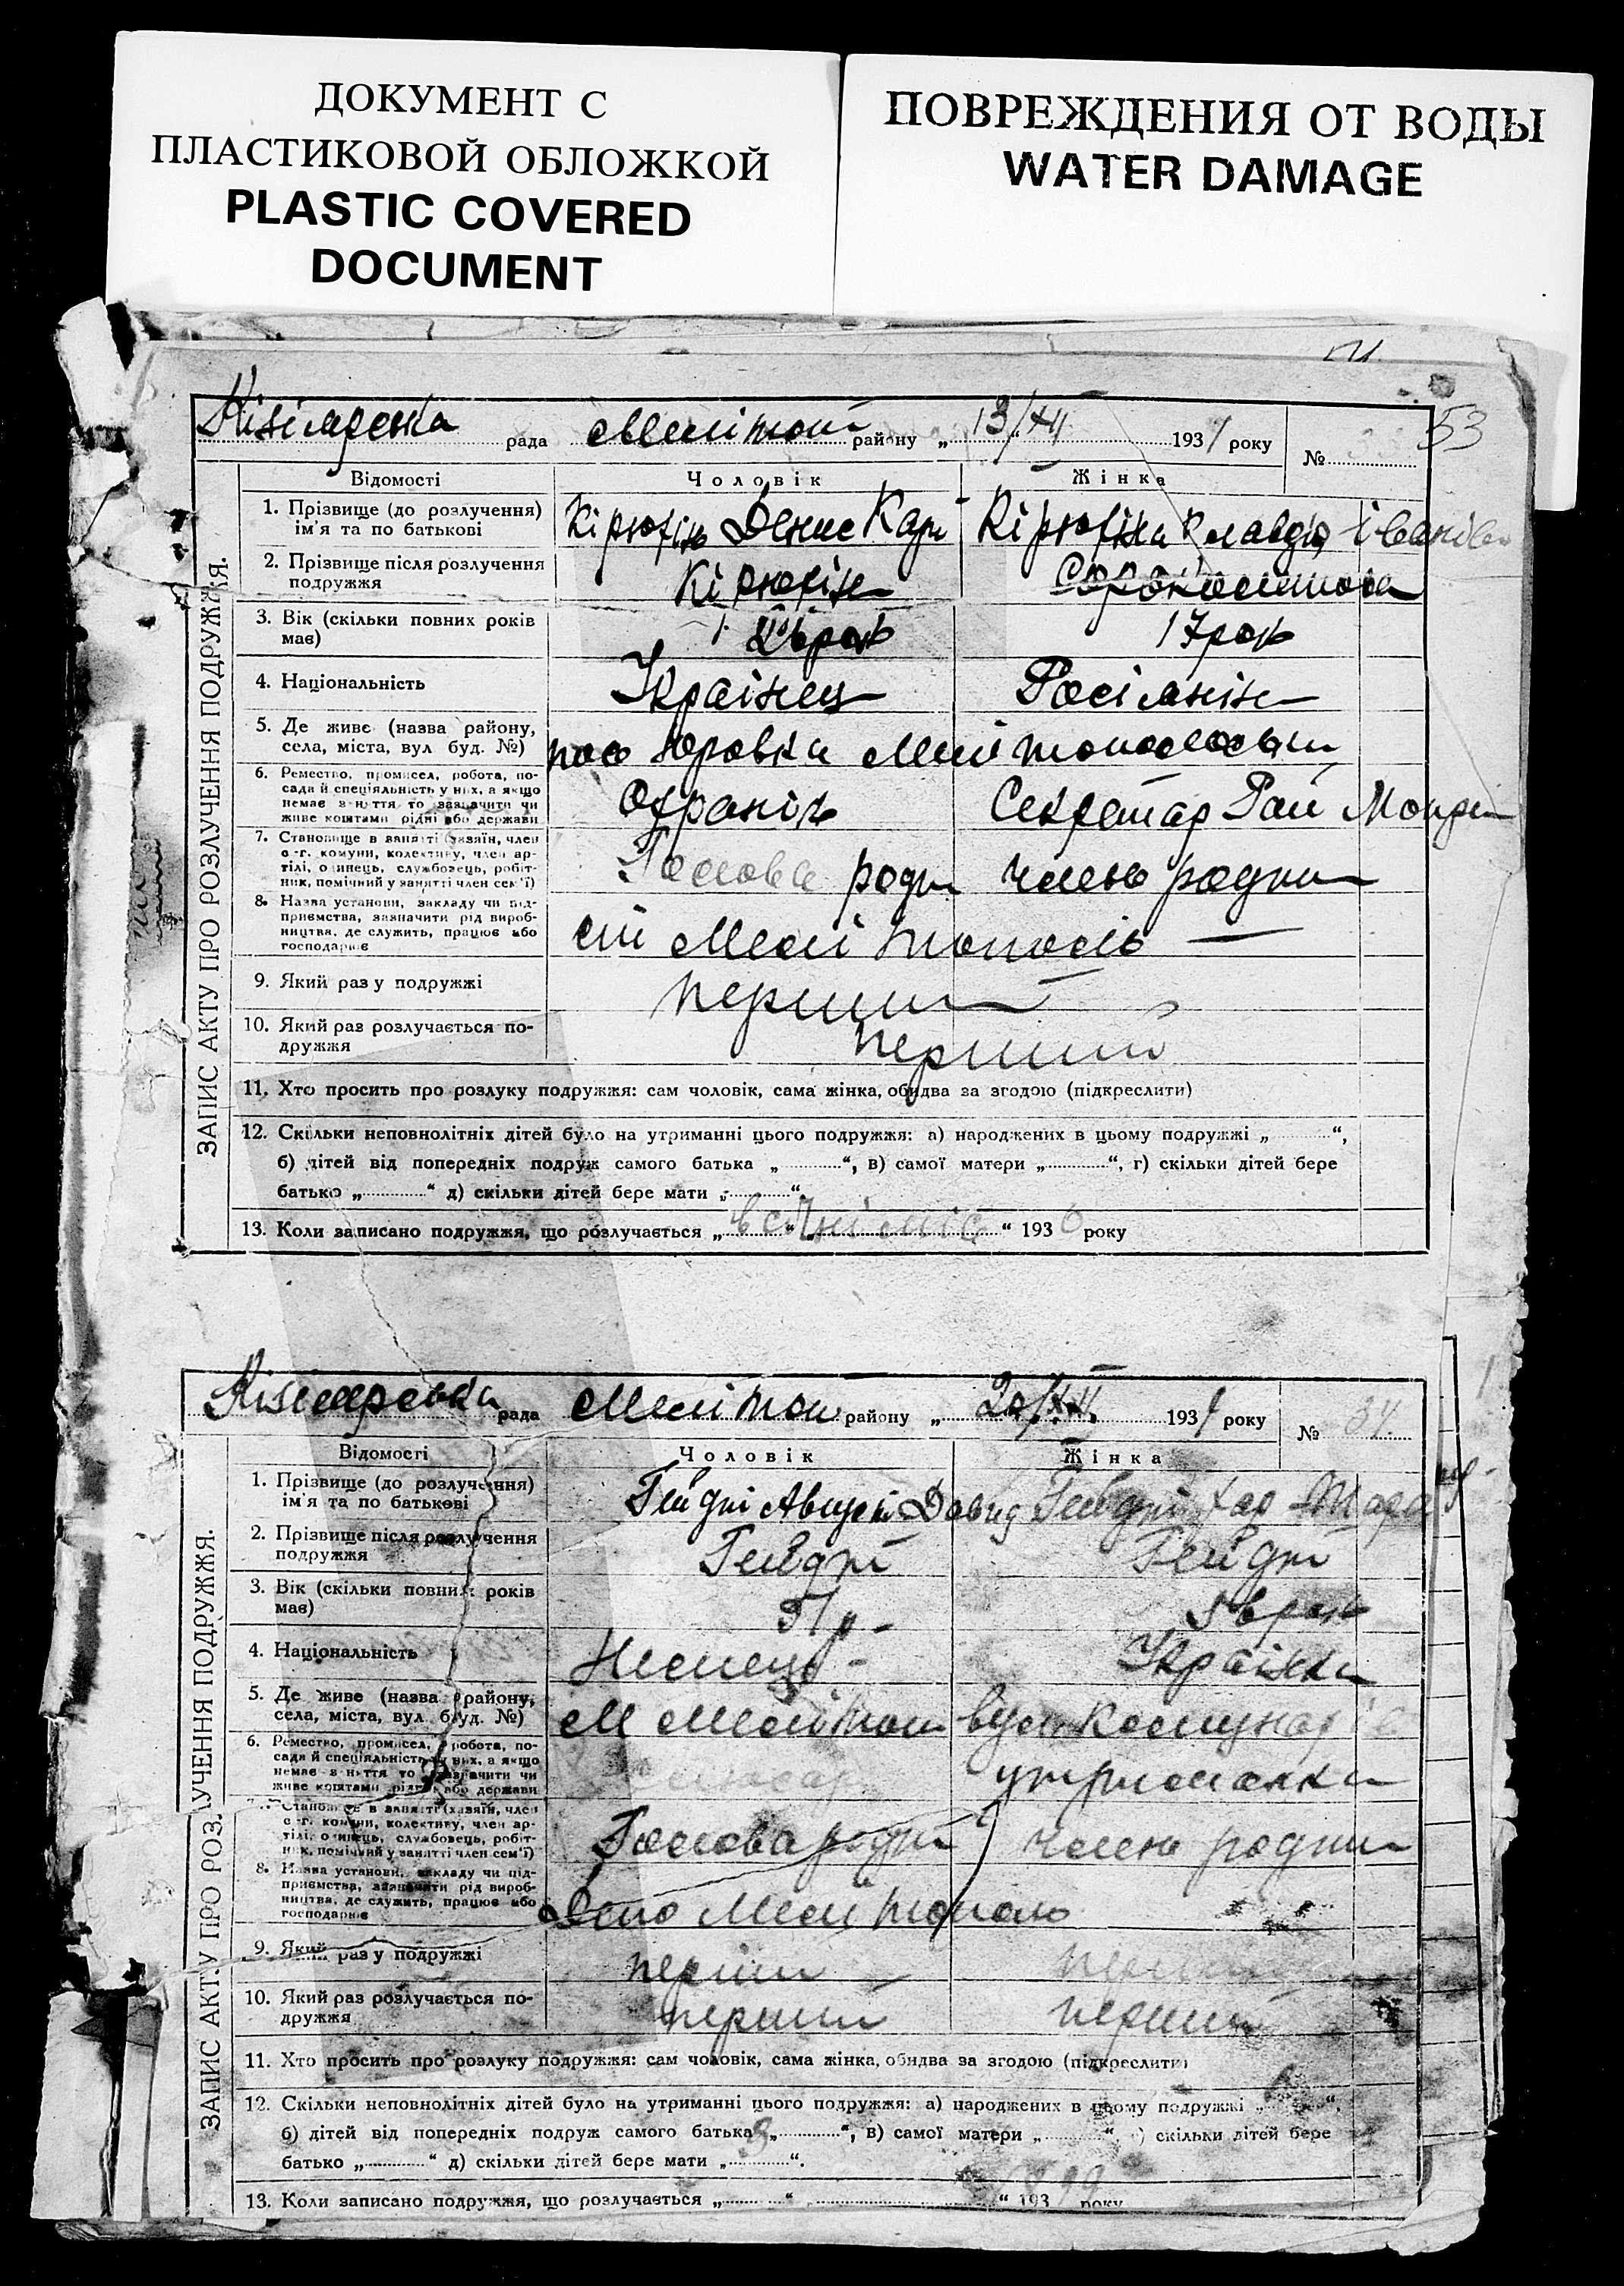 ДОКУМЕНТ С
ПЛАСТИКОВОЙ ОБЛОЖКОЙ
PLASTIC COVERED
DOCUMENT
ПОВРЕЖДЕНИЯ ОТ ВОДЫ
WATER DAMAGE
53
рада Меліտоп району „ 13/XII 1931 року №
ЗАПИС АКТУ ПРО РОЗЛУЧЕННЯ ПОДРУЖЖЯ.
Відомості Чоловік Жінка
1. Прізвище (до розлучення) ім'я та по батькові Кірюхін Денис Кірюхіна Клавдія Іванів
2. Прізвище після розлучення подружжя Кірюхін
3. Вік (скільки повних років має) 17 рок
4. Національність Українец Росіянін
5. Де живе (назва району, села, міста, вул. буд. №) пос Юровка
6. Ремество, промисел, робота, посада й спеціяльність у них, а якщо немає з-ття то зазначити чи живе коштами рідні або держави Охранік Секретар Рай
7. Становище в занятті (хазяїн, член с.-г. комуни, колективу, член артілі, одинець, службовець, робітник, помічний у занятті член сем'ї) Голова родин член родини
8. Назва установи, закладу чи підприємства, зазначити рід виробництва, де служить, працює або господарює ст Мелітополь —
9. Який раз у подружжі перший
10. Який раз розлучається подружжя перший
11. Хто просить про розлуку подружжя: сам чоловік, сама жінка, обидва за згодою (підкреслити)
12. Скільки неповнолітніх дітей було на утриманні цього подружжя: а) народжених в цьому подружжі „ “,
б) дітей від попередніх подруж самого батька „ “, в) самої матери „ “, г) скільки дітей бере
батько „ “ д) скільки дітей бере мати „ “.
13. Коли записано подружжя, що розлучається „ в січні міс “ 1930 року
рада Меліտоп району „ 20/XII 1931 року № 34
ЗАПИС АКТУ ПРО РОЗЛУЧЕННЯ ПОДРУЖЖЯ.
Відомості Чоловік Жінка
1. Прізвище (до розлучення) ім'я та по батькові Давид
2. Прізвище після розлучення подружжя
3. Вік (скільки повних років має) 51 р -
4. Національність Немець - Українка
5. Де живе (назва району, села, міста, вул. буд. №) М Мелітоп вул.
6. Ремество, промисел, робота, посада й спеціяльність у них, а якщо немає з-ття то зазначити чи живе коштами рідні або держави утриманка
7. Становище в занятті (хазяїн, член с.-г. комуни, колективу, член артілі, одинець, службовець, робітник, помічний у занятті член сем'ї) Голова родин член родини
8. Назва установи, закладу чи підприємства, зазначити рід виробництва, де служить, працює або господарює Депо Мелітополь
9. Який раз у подружжі перший
10. Який раз розлучається подружжя перший перший
11. Хто просить про розлуку подружжя: сам чоловік, сама жінка, обидва за згодою (підкреслити)
12. Скільки неповнолітніх дітей було на утриманні цього подружжя: а) народжених в цьому подружжі „ “,
б) дітей від попередніх подруж самого батька „ “, в) самої матери „ “, г) скільки дітей бере
батько „ “ д) скільки дітей бере мати „ “.
13. Коли записано подружжя, що розлучається „ “ “ 193 року